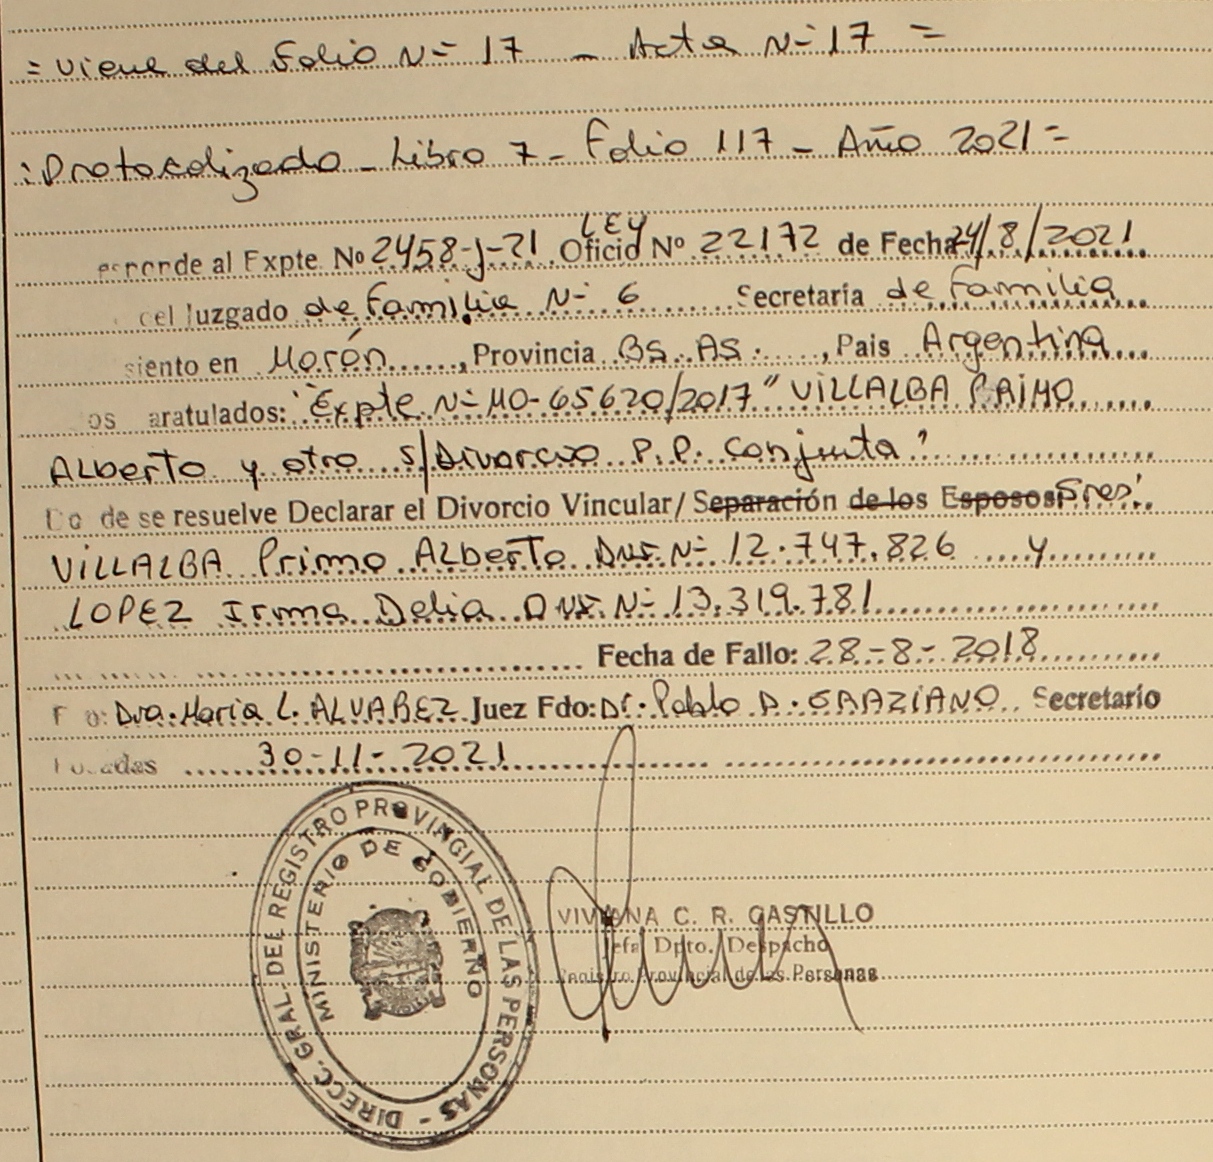 = Viene del Folio N= 17 - Acta N= 17 =
: Protocolizado - Libro 7 - Folio 117 - Año 2021 =
LEY
al Expte Nº 2458-J-21 Oficio Nº 22172 de Fecha 24/8/2021
cel Juzgado de Familia N- 6 Secretaría de Familia
siento en Morón, Provincia Bs. As., Pais Argentina
os aratulados: "Expte N= MO-65620/2017" VILLALBA PAIMO
ALberto y otro s/Divorcio P.P. conjunta"
de se resuelve Declarar el Divorcio Vincular/ Separación de los Esposos Sres:
VILLALBA Primo ALberto DNI. N= 12.747.826 y
LOPEZ Irma Delia DNI. N= 13.319.781
Fecha de Fallo: 28-8-2018
Dra. Maria L. ALVAREZ Juez Fdo: Dr. Pablo D. GRAZIANO Secretario
30-11-2021
DIRECC. GRAL. DEL REGISTRO PROVINCIAL DE LAS PERSONAS -
MINISTERIO DE GOBIERNO
VIVIANA C. R. CASTILLO
Jefa Dpto. Despacho
Registro Provincial de las Personas